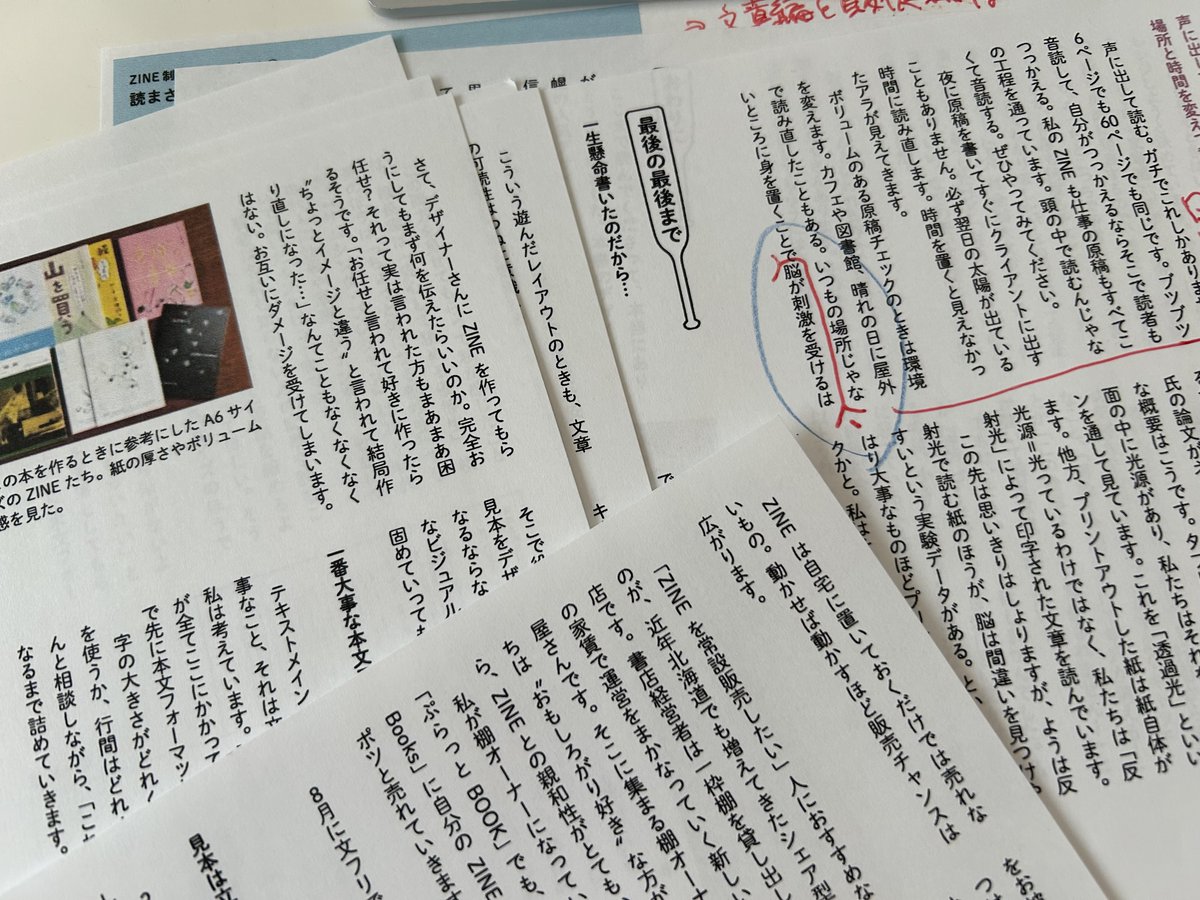 ZINE 制
読まさ
声に出し
場所と時間を変え
声に出して読む。ガチでこれしかありま
6ページでも60ページでも同じです。ブツブツ
音読して、自分がつっかえるならそこで読者も
つっかえる。私の ZINE も仕事の原稿もすべてこ
の工程を通っています。頭の中で読むんじゃな
くて音読する。ぜひやってみてください。
夜に原稿を書いてすぐにクライアントに出す
こともありません。必ず翌日の太陽が出ている
時間に読み直します。時間を置くと見えなかっ
たアラが見えてきます。
ボリュームのある原稿チェックのときは環境
を変えます。カフェや図書館、晴れの日に屋外
で読み直したこともある。いつもの場所じゃな
いところに身を置くことで脳が刺激を受けるは
氏の論文が
な概要はこうです。タ
面の中に光源があり、私たちはそれ
ンを通して見ています。これを「透過光」とい
ます。他方、プリントアウトした紙は紙自体が
光源=光っているわけではなく、私たちは「反
射光」によって印字された文章を読んでいます。
この先は思いきりはしょりますが、ようは反
射光で読む紙のほうが、脳は間違いを見つけ
すいという実験データがある。と
はり大事なものほどプ
クかと。私は
最後の最後まで
一生懸命書いたのだから…
こういう遊んだレイアウトのときも、文章
さて、デザイナーさんに ZINE を作ってもら
うにしてもまず何を伝えたらいいのか。完全お
任せ？それって実は言われた方もまあまあ困
るそうです。「お任せと言われて好きに作ったら
"ちょっとイメージと違う"と言われて結局作
り直しになった…」なんてこともなくなくなく
はない。お互いにダメージを受けてしまいます。
そこで
見本をデザ
なるならな
なビジュアル
固めていっても
一番大事な本文
テキストメイン
事なこと、それは
私は考えています。
が全てここにかかって
で先に本文フォーマッ
字の大きさがどれく
を使うか、行間はどれ
んと相談しながら、「こ
なるまで詰めていきます。
山を買う
の本を作るときに参考にした A6 サイ
ズの ZINE たち。紙の厚さやボリューム
感を見た。
ZINE は自宅に置いておくだけでは売れな
いもの。動かせば動かすほど販売チャンスは
広がります。
「ZINE を常設販売したい」人におすすめな
のが、近年北海道でも増えてきたシェア型
店です。書店経営者は一枠棚を貸し出し
の家賃で運営をまかなっていく新しい
屋さんです。そこに集まる棚オーナ
ちは"おもしろがり好き"な方が
ら、ZINE との親和性がとても
私が棚オーナーになってい
「ぷらっと BOOK」でも、
Books」に自分の ZINE
ポツと売れていきます
8月に文フリで
見本は立